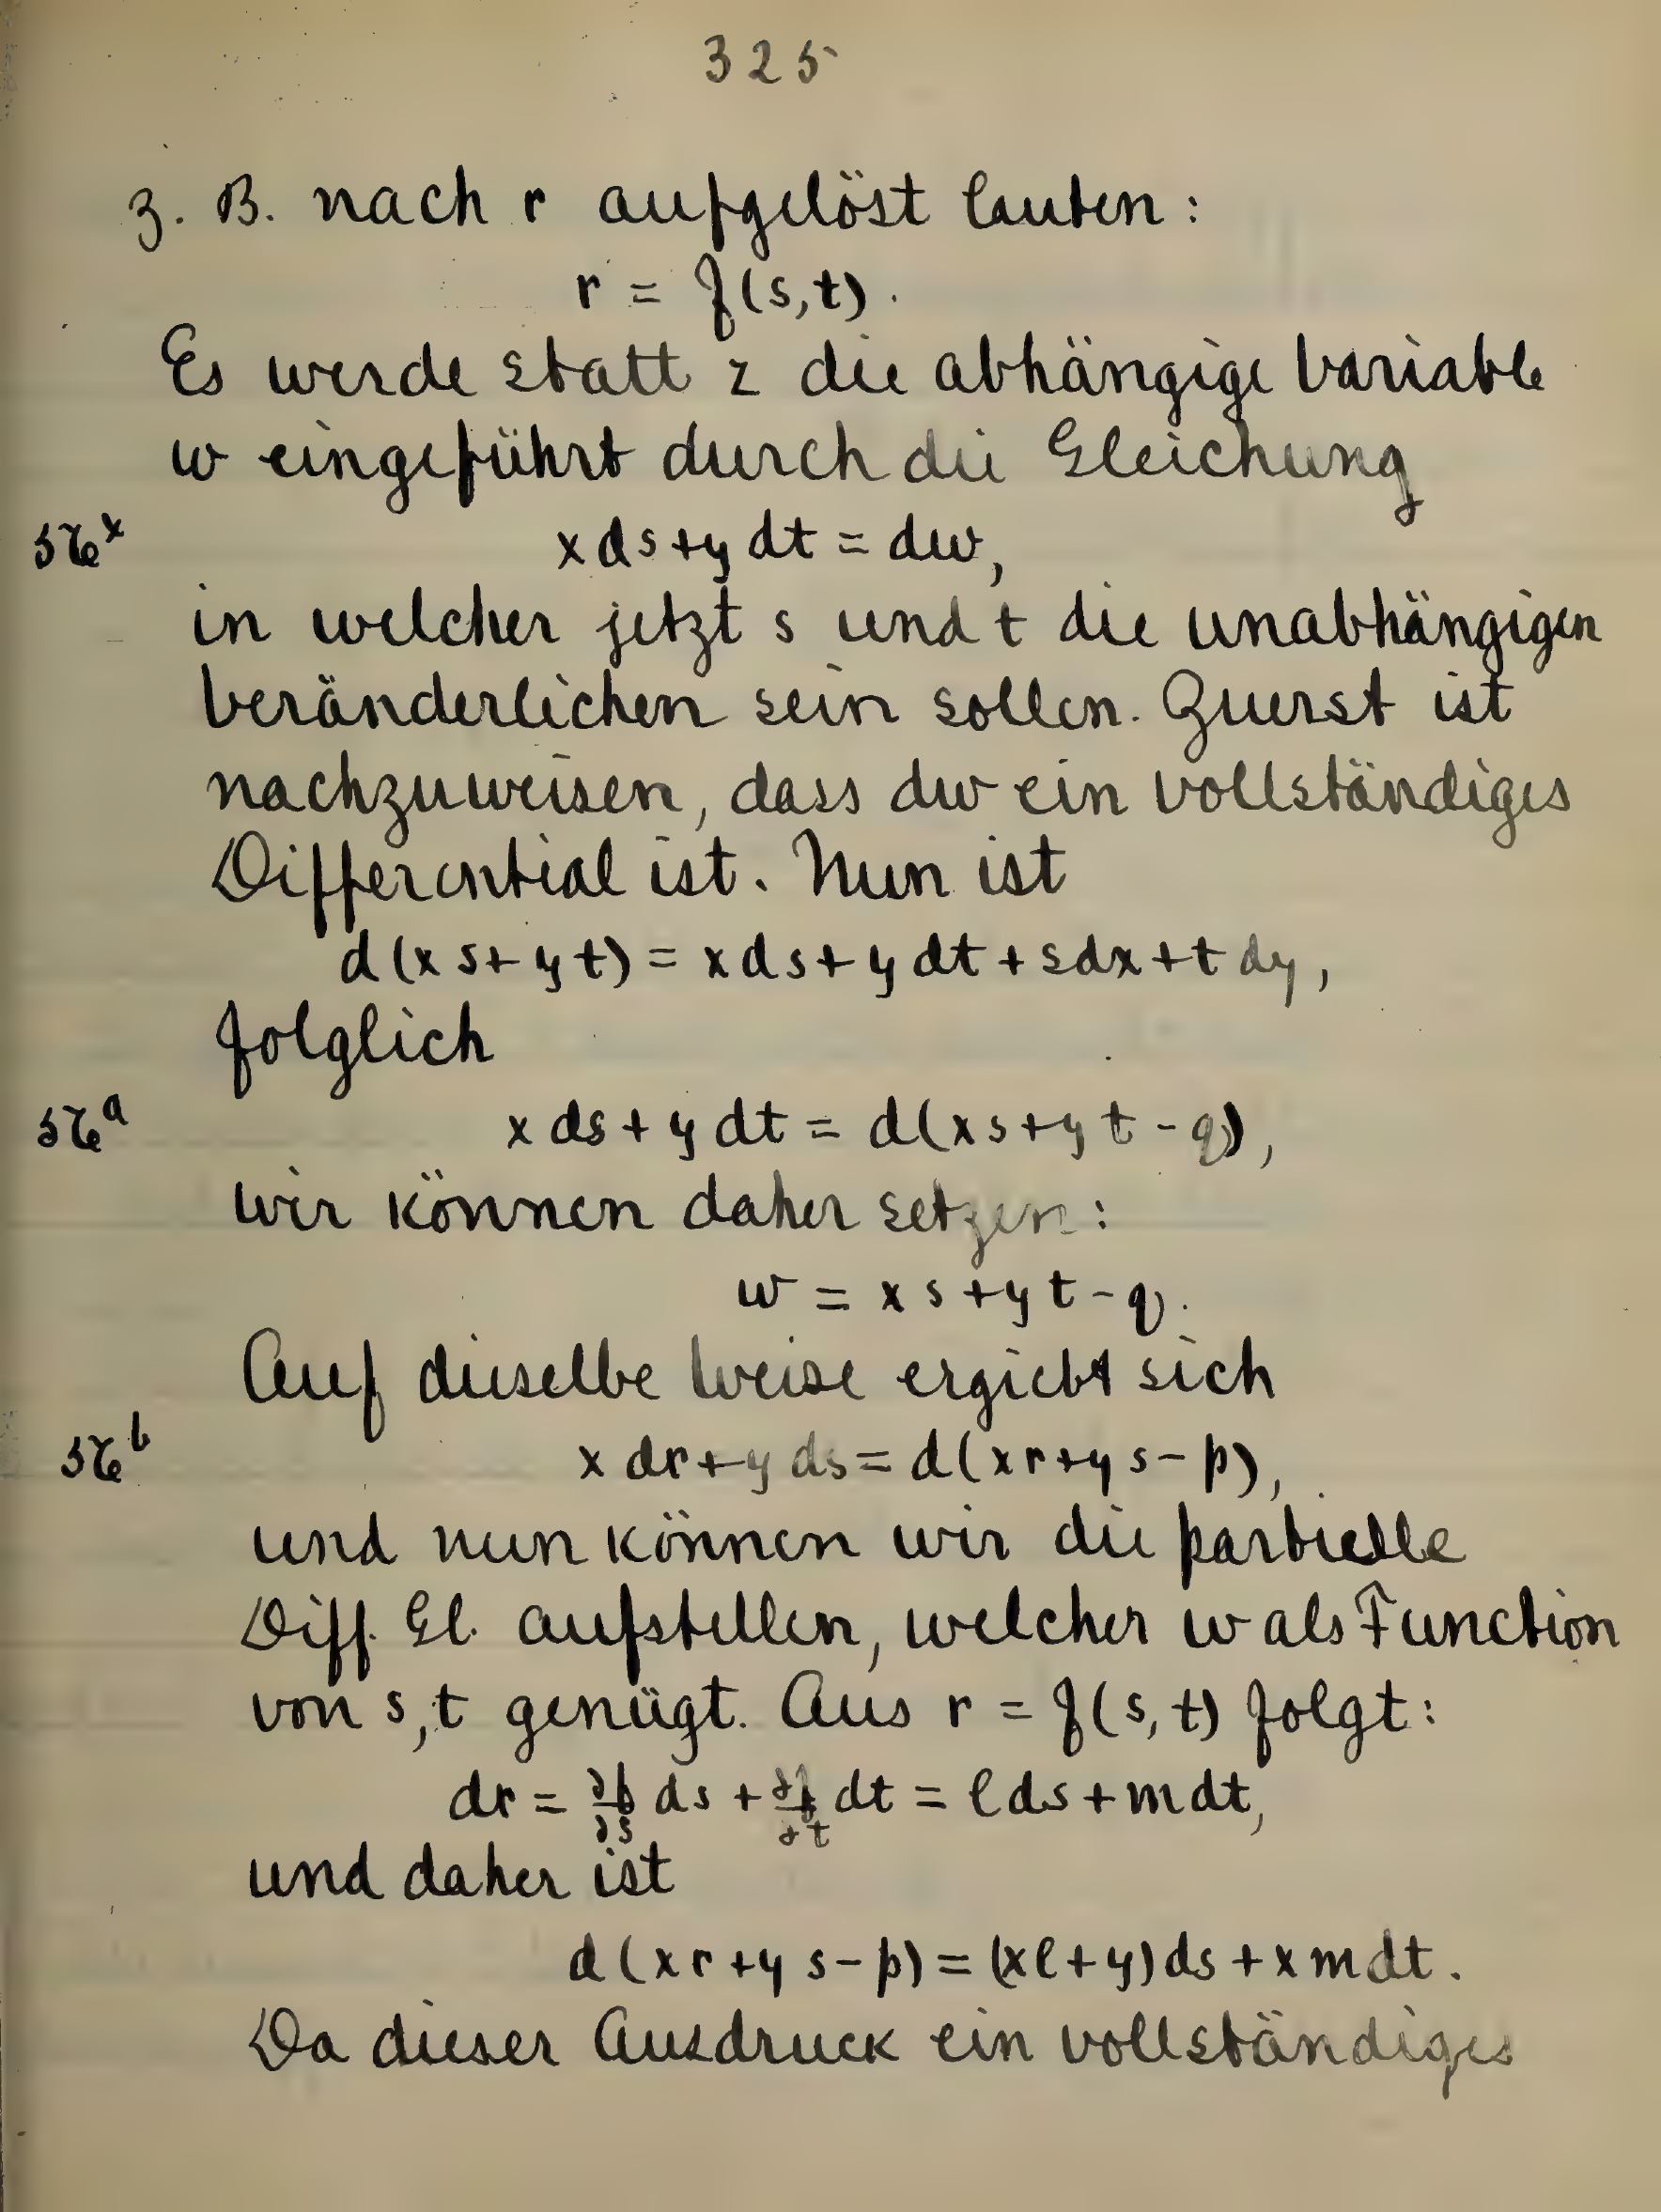 325
z. B. nach r aufgelöst lauten:
r = f(s,t).
Es werde statt z die abhängige Variable
w eingeführt durch die Gleichung
x ds + y dt = dw,
in welcher jetzt s und t die unabhängigen
Veränderlichen sein sollen. Zuerst ist
nachzuweisen, dass dw ein vollständiges
Differential ist. Nun ist
d(x s + y t) = x ds + y dt + s dx + t dy,
folglich
x ds + y dt = d(x s + y t - q),
wir können daher setzen:
w = x s + y t - q.
Auf dieselbe Weise ergiebt sich
x dr + y ds = d(x r + y s - p),
und nun können wir die partielle
Diff. Gl. aufstellen, welcher w als Function
von s, t genügt. Aus r = f(s,t) folgt:
dr = ∂f/∂s ds + ∂f/∂t dt = l ds + m dt,
und daher ist
d(x r + y s - p) = (x l + y) ds + x m dt.
Da dieser Ausdruck ein vollständiges